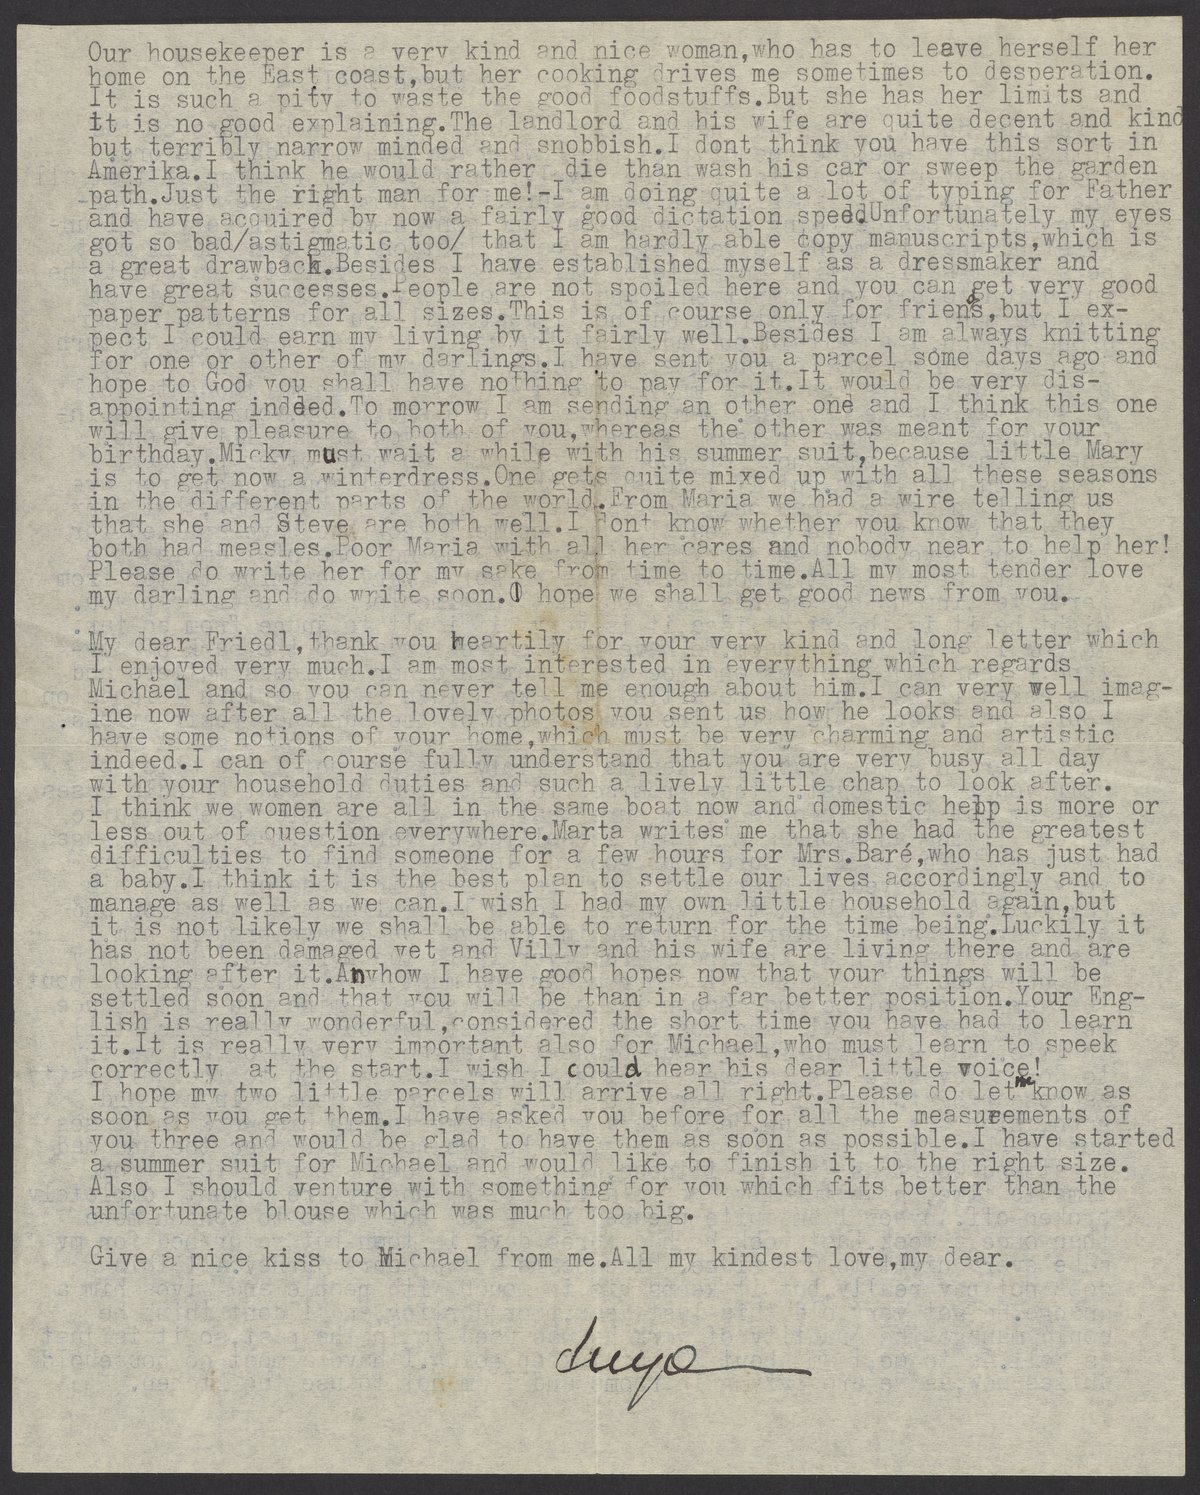 Our housekeeper is a very kind and nice woman,who has to leave herself her
home on the East coast,but her cooking drives me sometimes to desperation.
It is such a pity to waste the good foodstuffs.But she has her limits and
it is no good explaining.The landlord and his wife are quite decent and kind
but terribly narrow minded and snobbish.I dont think you have this sort in
Amerika.I think he would rather die than wash his car or sweep the garden
path.Just the right man for me!-I am doing quite a lot of typing for Father
and have acquired by now a fairly good dictation speed.Unfortunately my eyes
got so bad/astigmatic too/ that I am hardly able copy manuscripts,which is
a great drawback.Besides I have established myself as a dressmaker and
have great successes.People are not spoiled here and you can get very good
paper patterns for all sizes.This is of course only for friens,but I ex-
pect I could earn my living by it fairly well.Besides I am always knitting
for one or other of my darlings.I have sent you a parcel some days ago and
hope to God you shall have nothing to pay for it.It would be very dis-
appointing indeed.To morrow I am sending an other one and I think this one
will give pleasure to both of you,whereas the other was meant for your
birthday.Micky must wait a while with his summer suit,because little Mary
is to get now a winterdress.One gets quite mixed up with all these seasons
in the different parts of the world.From Maria we had a wire telling us
that she and Steve are both well.I dont know whether you know that they
both had measles.Poor Maria with all her cares and nobody near to help her!
Please do write her for my sake from time to time.All my most tender love
my darling and do write soon.I hope we shall get good news from you.

My dear Friedl,thank you heartily for your very kind and long letter which
I enjoyed very much.I am most interested in everything which regards
Michael and so you can never tell me enough about him.I can very well imag-
ine now after all the lovely photos you sent us how he looks and also I
have some notions of your home,which must be very charming and artistic
indeed.I can of course fully understand that you are very busy all day
with your household duties and such a lively little chap to look after.
I think we women are all in the same boat now and domestic help is more or
less out of question everywhere.Marta writes me that she had the greatest
difficulties to find someone for a few hours for Mrs.Baré,who has just had
a baby.I think it is the best plan to settle our lives accordingly and to
manage as well as we can.I wish I had my own little household again,but
it is not likely we shall be able to return for the time being.Luckily it
has not been damaged yet and Villy and his wife are living there and are
looking after it.Anyhow I have good hopes now that your things will be
settled soon and that you will be than in a far better position.Your Eng-
lish is really wonderful,considered the short time you have had to learn
it.It is really very important also for Michael,who must learn to speek
correctly at the start.I wish I could hear his dear little voice!
I hope my two little parcels will arrive all right.Please do let me know as
soon as you get them.I have asked you before for all the measurements of
you three and would be glad to have them as soon as possible.I have started
a summer suit for Michael and would like to finish it to the right size.
Also I should venture with something for you which fits better than the
unfortunate blouse which was much too big.

Give a nice kiss to Michael from me.All my kindest love,my dear.